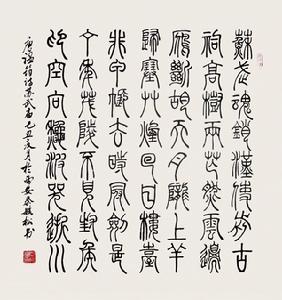 蘇武魂銷漢使前古
祠高樹兩茫然雲邊
雁斷胡天月隴上羊
歸塞草煙回日樓臺
非甲帳去時冠劍是
丁年茂陵不見封侯
印空向秋波哭逝川
唐溫筠詩蘇武廟己丑夏月於西安秦松書